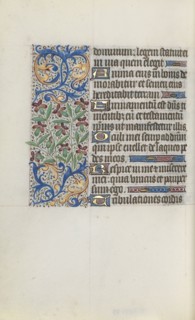 dominum: legem statuit ei
in via quam elegit
Anima eius in bonis de
morabitur et semen eius
hereditabit terram
Firmamentum est dns ti
mentibus eum et testamentū
ipsius ut manifestetur illis
Oculi mei semp ad dominū
qm ipse evellet de laqueo pe
des meos
Respice in me et miserere
mei: quia unicus et pauper
sum ego
Tribulationes cordis